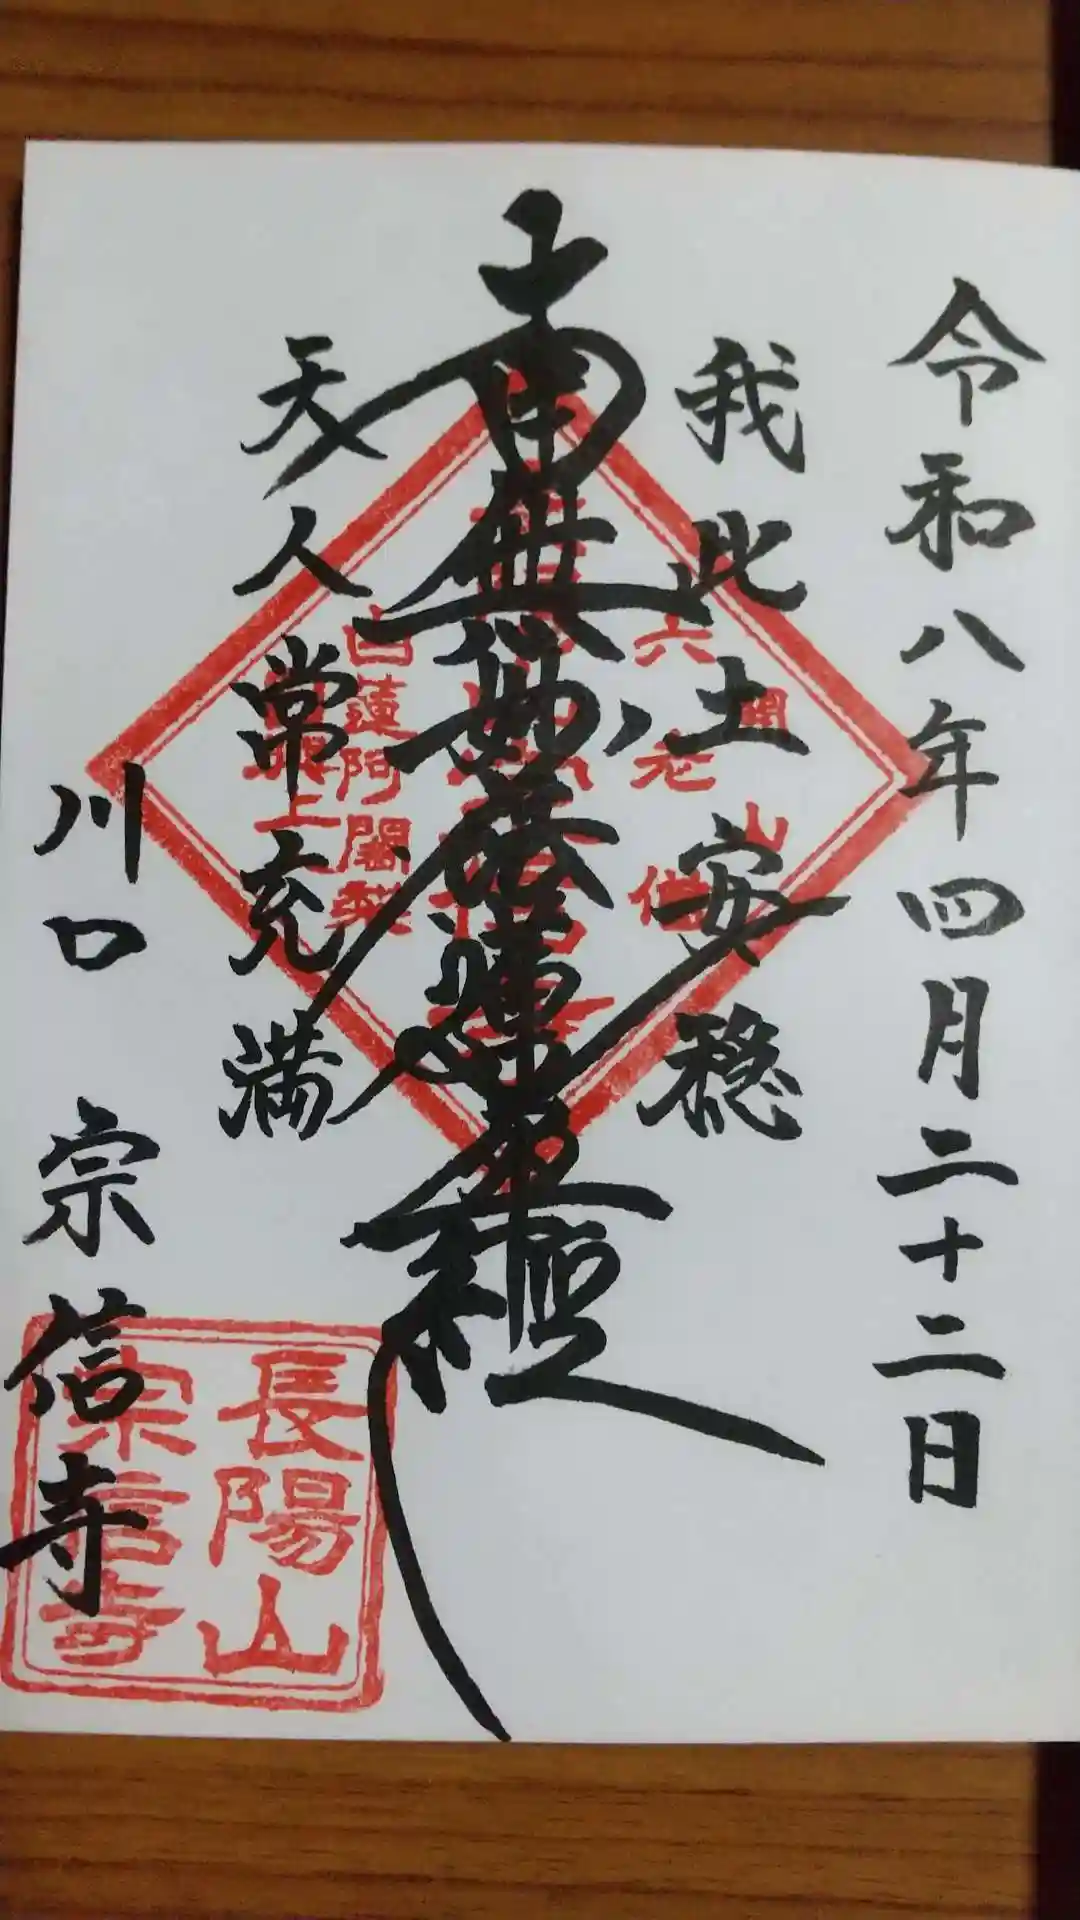 令和八年四月二十二日
我此土安穏
南無妙法蓮華経
天人常充満
川口 宗信寺
六老僧
白蓮阿闍梨
長陽山
宗信寺